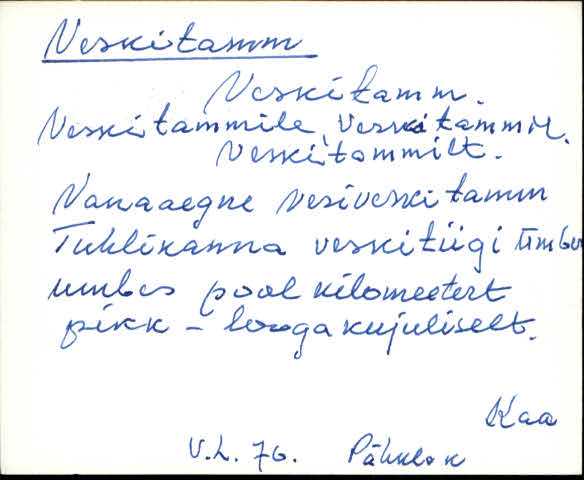 Veskitamm
Veskitamm.
Veskitammile, Veskitammil.
Veskitammilt.
Vanaaegne vesiveskitamm
Tuhlikanna veskitiigi ümber
umbes pool kilomeetert
pikk - loogakujuliselt.
Kaa
V.L. 76. Pähkla k